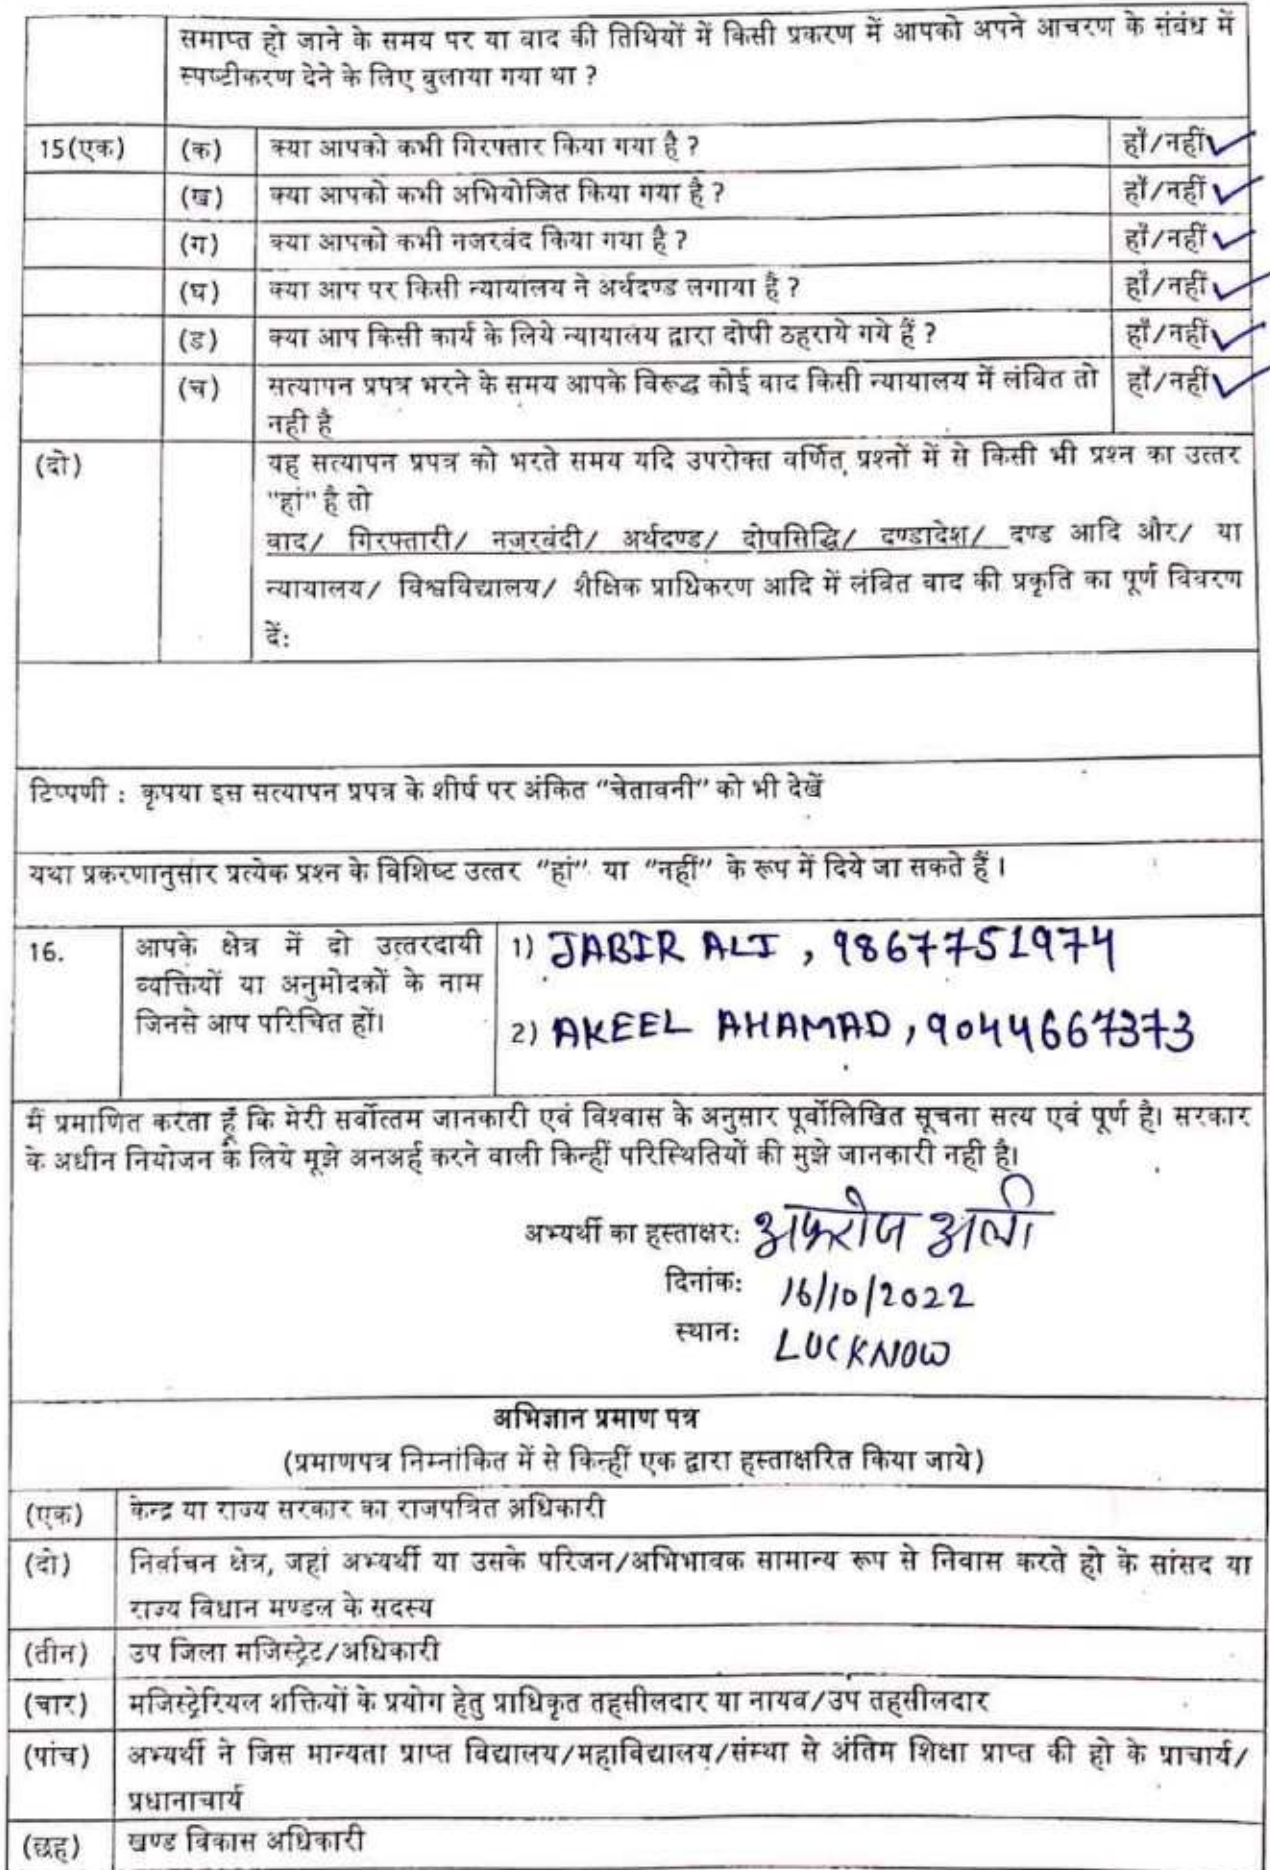 समाप्त हो जाने के समय पर या वाद की तिथियों में किसी प्रकरण में आपको अपने आचरण के संबंध में
स्पष्टीकरण देने के लिए बुलाया गया था ?
15(एक) (क) क्या आपको कभी गिरफ्तार किया गया है ? हाँ/नहीं ✓
(ख) क्या आपको कभी अभियोजित किया गया है ? हाँ/नहीं ✓
(ग) क्या आपको कभी नजरबंद किया गया है ? हाँ/नहीं ✓
(घ) क्या आप पर किसी न्यायालय ने अर्थदण्ड लगाया है ? हाँ/नहीं ✓
(ड) क्या आप किसी कार्य के लिये न्यायालय द्वारा दोषी ठहराये गये हैं ? हाँ/नहीं ✓
(च) सत्यापन प्रपत्र भरने के समय आपके विरूद्ध कोई वाद किसी न्यायालय में लंबित तो हाँ/नहीं ✓
नही है
(दो) यह सत्यापन प्रपत्र को भरते समय यदि उपरोक्त वर्णित प्रश्नों में से किसी भी प्रश्न का उत्तर
"हां" है तो
वाद/ गिरफ्तारी/ नजरबंदी/ अर्थदण्ड/ दोषसिद्धि/ दण्डादेश/ दण्ड आदि और/ या
न्यायालय/ विश्वविद्यालय/ शैक्षिक प्राधिकरण आदि में लंबित वाद की प्रकृति का पूर्ण विवरण
दें:
टिप्पणी : कृपया इस सत्यापन प्रपत्र के शीर्ष पर अंकित "चेतावनी" को भी देखें
यथा प्रकरणानुसार प्रत्येक प्रश्न के विशिष्ट उत्तर "हां" या "नहीं" के रूप में दिये जा सकते हैं ।
16. आपके क्षेत्र में दो उत्तरदायी 1) JABIR ALI , 9867751974
व्यक्तियों या अनुमोदकों के नाम
जिनसे आप परिचित हों। 2) AKEEL AHAMAD, 9044667373
मैं प्रमाणित करता हूँ कि मेरी सर्वोत्तम जानकारी एवं विश्वास के अनुसार पूर्वोलिखित सूचना सत्य एवं पूर्ण है। सरकार
के अधीन नियोजन के लिये मूझे अनअर्ह करने वाली किन्हीं परिस्थितियों की मुझे जानकारी नही है।
अभ्यर्थी का हस्ताक्षर: अफरोज अली
दिनांक: 16/10/2022
स्थान: LUCKNOW
अभिज्ञान प्रमाण पत्र
(प्रमाणपत्र निम्नांकित में से किन्हीं एक द्वारा हस्ताक्षरित किया जाये)
(एक) केन्द्र या राज्य सरकार का राजपत्रित अधिकारी
(दो) निर्वाचन क्षेत्र, जहां अभ्यर्थी या उसके परिजन/अभिभावक सामान्य रूप से निवास करते हो के सांसद या
राज्य विधान मण्डल के सदस्य
(तीन) उप जिला मजिस्ट्रेट/अधिकारी
(चार) मजिस्ट्रेरियल शक्तियों के प्रयोग हेतु प्राधिकृत तहसीलदार या नायव/उप तहसीलदार
(पांच) अभ्यर्थी ने जिस मान्यता प्राप्त विद्यालय/महाविद्यालय/संस्था से अंतिम शिक्षा प्राप्त की हो के प्राचार्य/
प्रधानाचार्य
(छह) खण्ड विकास अधिकारी